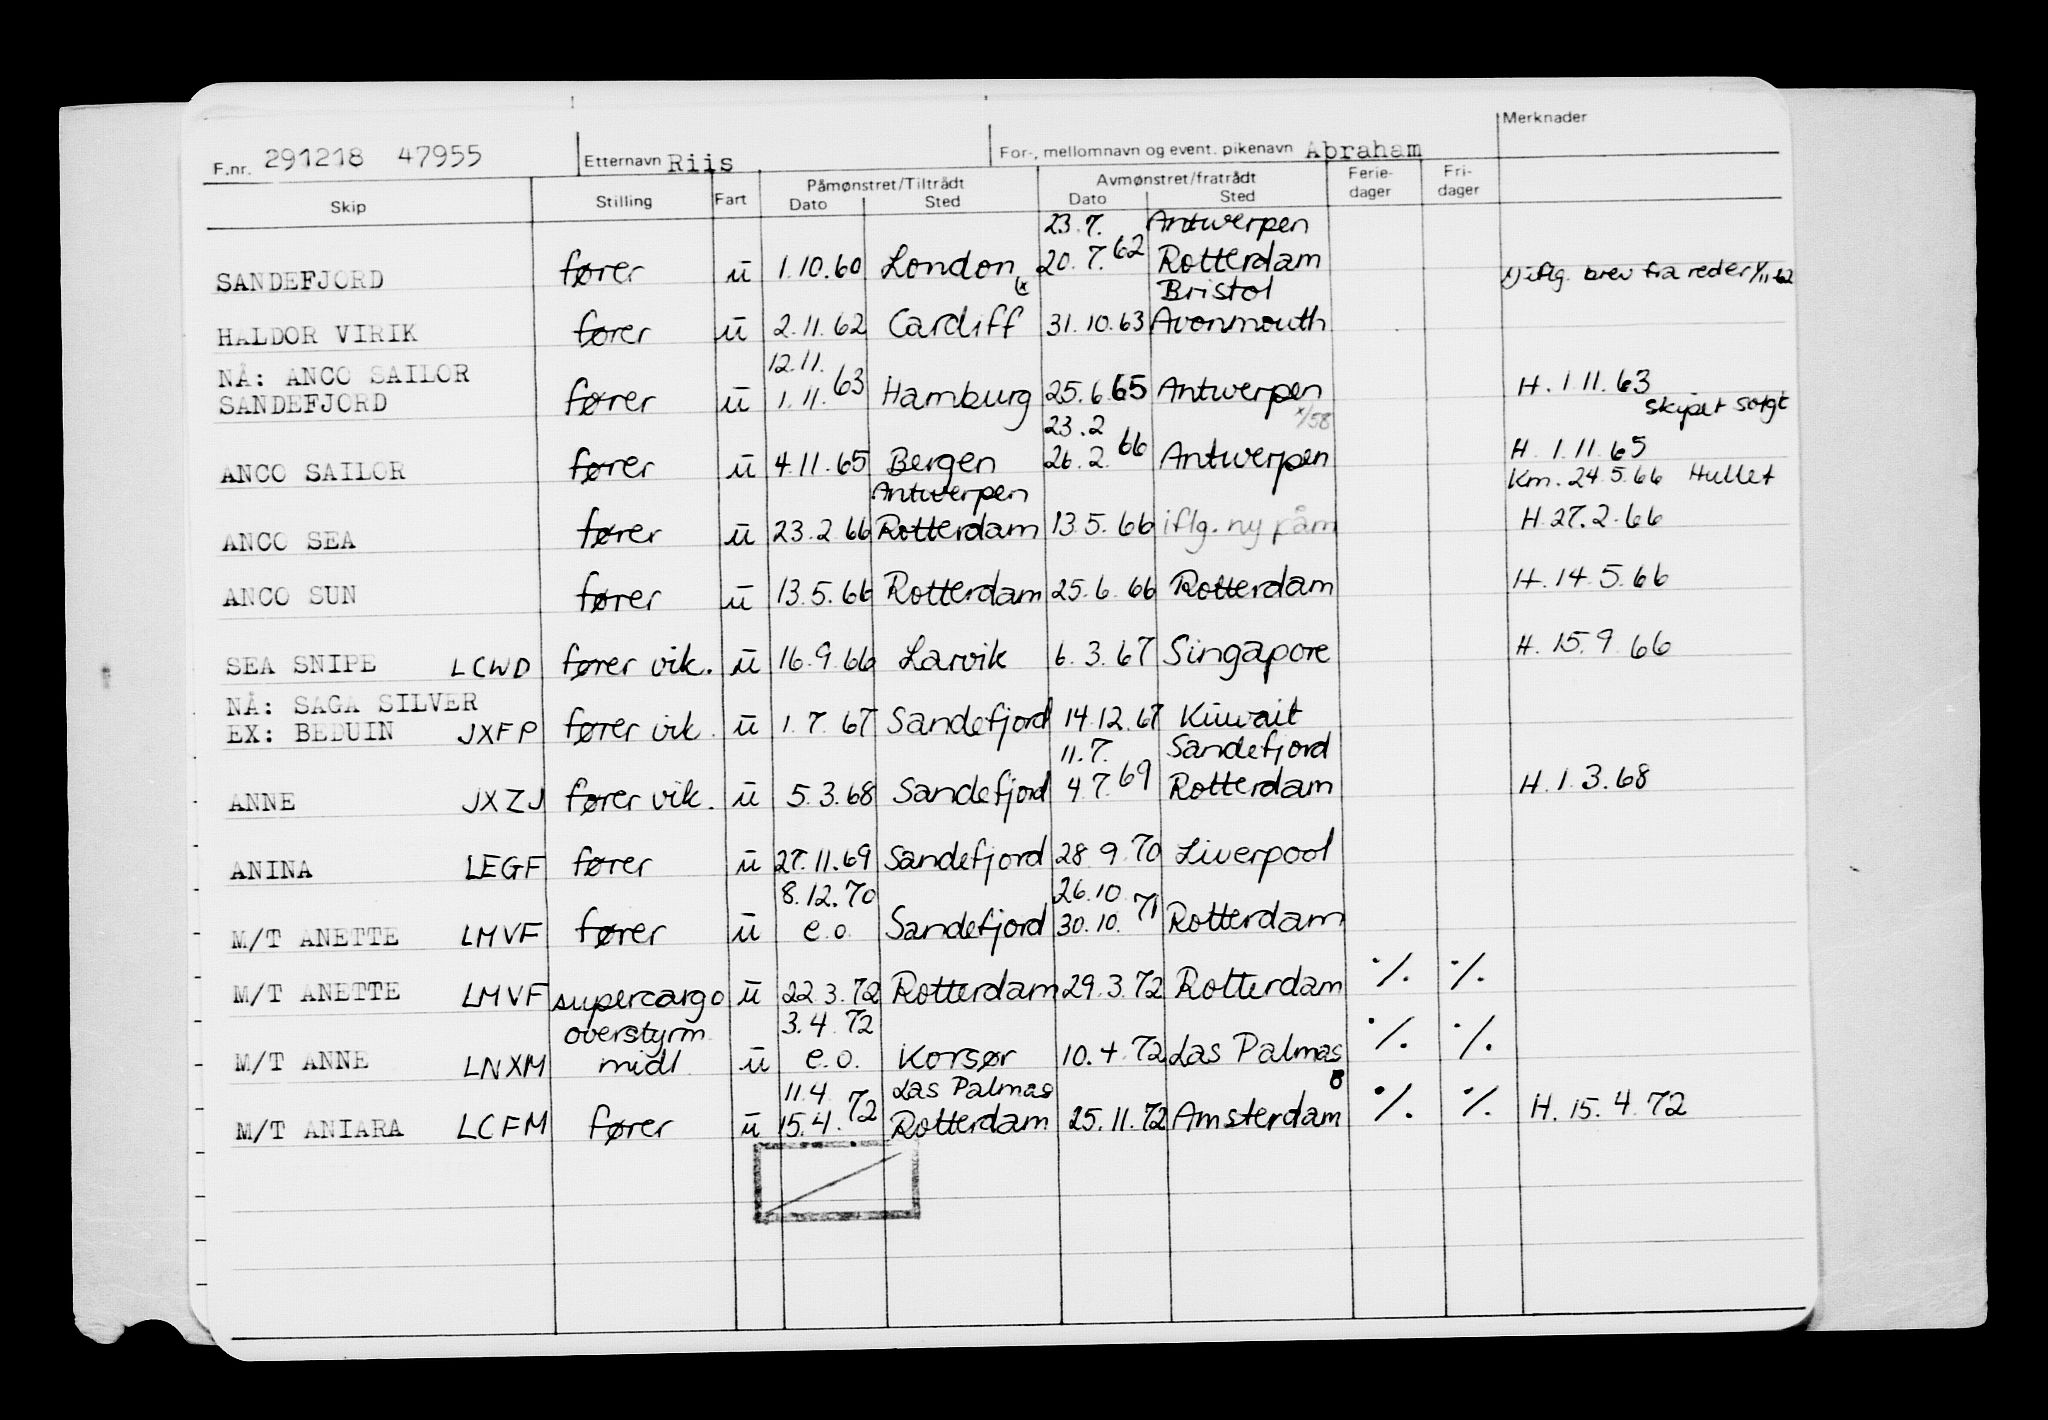 F.nr. 291218 47955 Etternavn Riis For-, mellomnavn og event. pikenavn Abraham Merknader
Skip Stilling Fart Påmønstret/Tiltrådt Avmønstret/fratrådt Ferie-dager Fri-dager
Dato Sted Dato Sted
23.7. Antwerpen
SANDEFJORD fører u 1.10.60 London 20.7.62 Rotterdam iflg. brev fra reder 1/11-62
Bristol
HALDOR VIRIK fører u 2.11.62 Cardiff 31.10.63 Avonmouth
NÅ: ANCO SAILOR 12.11.
SANDEFJORD fører u 1.11.63 Hamburg 25.6.65 Antwerpen H. 1.11.63
x/58 skipet solgt
23.2
ANCO SAILOR fører u 4.11.65 Bergen 26.2.66 Antwerpen H. 1.11.65
Antwerpen Km. 24.5.66 Hullet
ANCO SEA fører u 23.2.66 Rotterdam 13.5.66 iflg. ny påm H.27.2.66
ANCO SUN fører u 13.5.66 Rotterdam 25.6.66 Rotterdam H.14.5.66
SEA SNIPE LCWD fører vik. u 16.9.66 Larvik 6.3.67 Singapore H. 15.9.66
NÅ: SAGA SILVER
EX: BEDUIN JXFP fører vik. u 1.7.67 Sandefjord 14.12.67 Kuwait
11.7. Sandefjord
ANNE JXZJ fører vik. u 5.3.68 Sandefjord 4.7.69 Rotterdam H.1.3.68
ANINA LEGF fører u 27.11.69 Sandefjord 28.9.70 Liverpool
8.12.70 26.10
M/T ANETTE LMVF fører u e.o. Sandefjord 30.10.71 Rotterdam
M/T ANETTE LMVF supercargo u 22.3.72 Rotterdam 29.3.72 Rotterdam ·/. ·/.
overstyrm. 3.4.72
M/T ANNE LNXM midl u e.o. Korsør 10.4.72 Las Palmas ·/. ·/.
11.4. Las Palmas
M/T ANIARA LCFM fører u 15.4.72 Rotterdam 25.11.72 Amsterdam ·/. ·/. H. 15.4.72